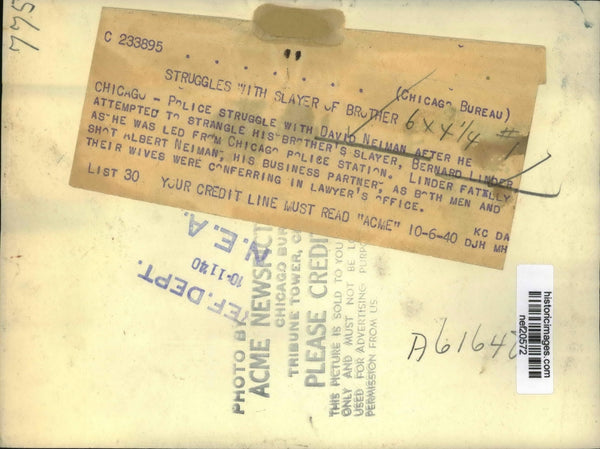 775
C 233895
STRUGGLES WITH SLAYER OF BROTHER
(CHICAGO BUREAU)
6 x 4 1/4 # 1
CHICAGO - POLICE STRUGGLE WITH DAVID NEIMAN AFTER HE
ATTEMPTED TO STRANGLE HIS BROTHER'S SLAYER, BERNARD LINDER
AS HE WAS LED FROM CHICAGO POLICE STATION. LINDER FATALLY
SHOT ALBERT NEIMAN, HIS BUSINESS PARTNER, AS BOTH MEN AND
THEIR WIVES WERE CONFERRING IN LAWYER'S OFFICE.
KC DA
LIST 30 YOUR CREDIT LINE MUST READ "ACME" 10-6-40 DJH MH
EF. DEPT.
10-11-40
N.E.A.
PHOTO BY
ACME NEWSPICT
CHICAGO BUR
TRIBUNE TOWER, C
PLEASE CREDI
THIS PICTURE IS SOLD TO YOU
ONLY AND MUST NOT BE
USED FOR ADVERTISING PURPO
PERMISSION FROM US
A6164
historicimages.com
nef20572